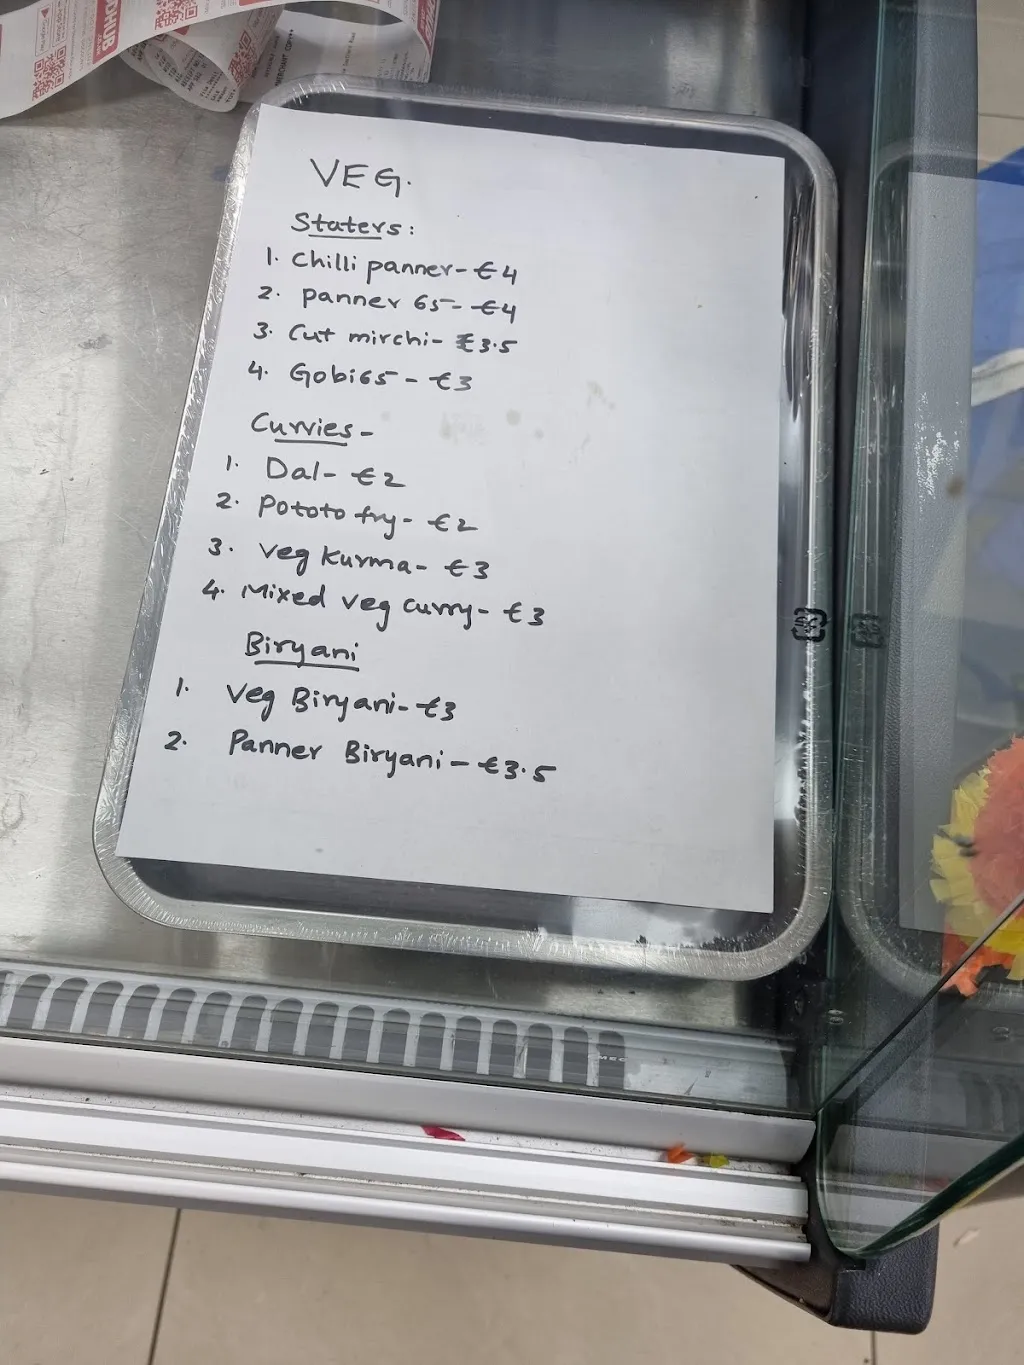 VEG.
Staters:
1. Chilli panner - €4
2. panner 65 - €4
3. Cut mirchi - €3.5
4. Gobi65 - €3
Curries -
1. Dal - €2
2. Pototo fry - €2
3. Veg Kurma - €3
4. Mixed veg curry - €3
Biryani
1. Veg Biryani - €3
2. Panner Biryani - €3.5